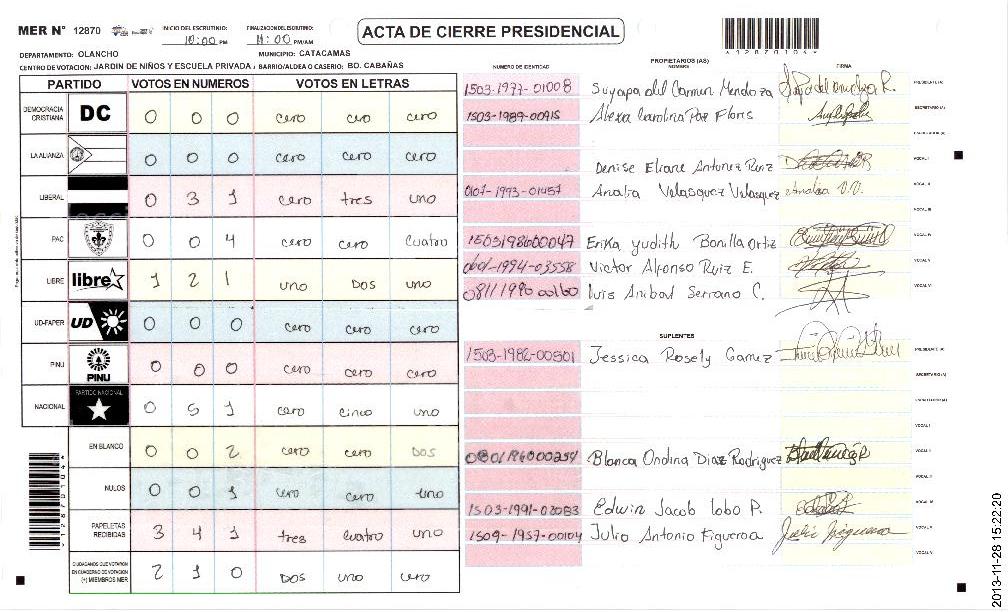 MER Nº 12870
INICIO DEL ESCRUTINIO: 10:00 PM
FINALIZACION DEL ESCRUTINIO: 11:00 PM/AM
ACTA DE CIERRE PRESIDENCIAL
*12870104*
DEPARTAMENTO: OLANCHO MUNICIPIO: CATACAMAS
CENTRO DE VOTACION: JARDIN DE NIÑOS Y ESCUELA PRIVADA BARRIO/ALDEA O CASERIO: BO. CABAÑAS
PARTIDO VOTOS EN NUMEROS VOTOS EN LETRAS
DEMOCRACIA CRISTIANA DC 0 0 0 cero cero cero
LA ALIANZA 0 0 0 cero cero cero
LIBERAL 0 3 1 cero tres uno
PAC 0 0 4 cero cero cuatro
LIBRE libre 1 2 1 uno DOS uno
UD-FAPER UD 0 0 0 cero cero cero
PINU PINU 0 0 0 cero cero cero
NACIONAL PARTIDO NACIONAL 0 5 1 cero cinco uno
EN BLANCO 0 0 2 cero cero DOS
NULOS 0 0 1 cero cero uno
PAPELETAS RECIBIDAS 3 4 1 tres cuatro uno
CIUDADANOS QUE VOTARON EN CUADERNO DE VOTACION (+) MIEMBROS MER 2 1 0 DOS uno cero
PROPIETARIOS (AS)
NUMERO DE IDENTIDAD NOMBRE FIRMA
1503-1977-01008 Suyapa del Carmen Mendoza PRESIDENTE (A)
1503-1989-00915 Alexa Carolina Paz Flores SECRETARIO (A)
Denise Eliane Antunez Ruiz VOCAL I
0107-1993-01457 Analia Velasquez Velasquez Analia V.V. VOCAL II
VOCAL III
1503198600047 Erika yudith Bonilla Ortiz VOCAL IV
0601-1994-03558 Victor Alfonso Ruiz E. VOCAL V
0811 1990 00160 Luis Anibal Serrano C. VOCAL VI
SUPLENTES
1503-1982-00801 Jessica Rosely Gamez PRESIDENTE (A)
SECRETARIO (A)
ESCRUTADOR (A)
VOCAL I
Blanca Ondina Diaz Rodriguez VOCAL II
VOCAL III
1503-1991-03083 Edwin Jacob lobo P. VOCAL IV
1509-1957-00104 Julio Antonio Figueroa Julio Figueroa VOCAL V
VOCAL VI
*12870104*
2013-11-28 15:22:20